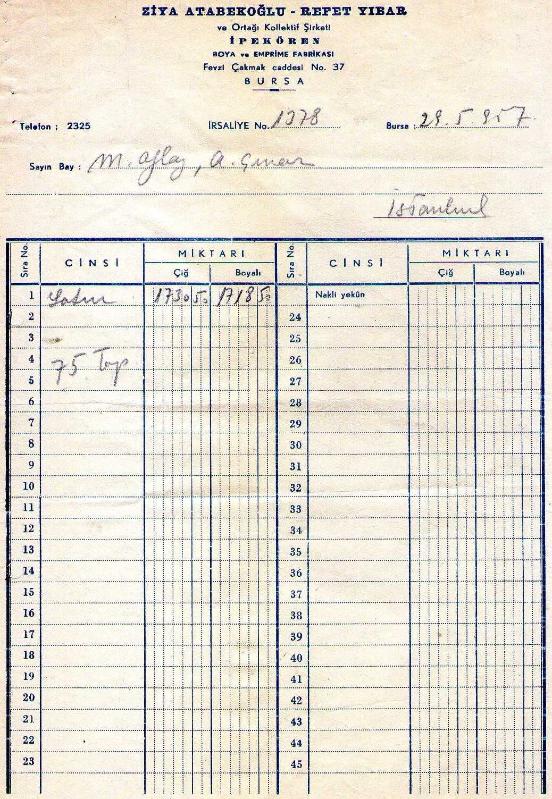 ZİYA ATABEKOĞLU - REFET YIBAR
ve Ortağı Kollektif Şirketi
İPEKÖREN
BOYA ve EMPRİME FABRİKASI
Fevzi Çakmak caddesi No. 37
BURSA
Telefon : 2325 İRSALİYE No. 1378 Bursa : 29.5.957
Sayın Bay : M. A. Çınar
İstanbul
Sıra No. CİNSİ MİKTARI Sıra No. CİNSİ MİKTARI
Çiğ Boyalı Çiğ Boyalı
1 Saten 1730 50 1718 50 Nakli yekûn
2 24
3 25
4 75 Top 26
5 27
6 28
7 29
8 30
9 31
10 32
11 33
12 34
13 35
14 36
15 37
16 38
17 39
18 40
19 41
20 42
21 43
22 44
23 45